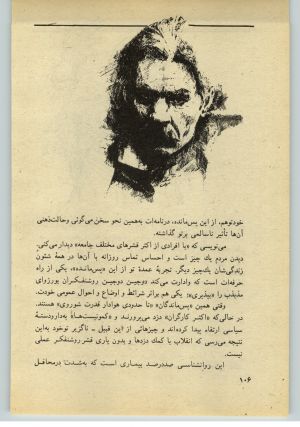 خودتوهم، از این پس‌مانده، درنامه‌ات به‌همین نحو سخن می‌گوئی وحالت‌ذهنی
آن‌ها تأثیر ناسالمی برتو گذاشته.
می‌نویسی که «با افرادی از اکثر قشرهای مختلف جامعه» دیدار می‌کنی.
دیدن مردم یك چیز است و احساس تماس روزانه با آن‌ها در همهٔ شئون
زندگی‌شان یك‌چیز دیگر. تجربهٔ عمدهٔ تو از این «پس‌مانده»، یکی از راه
حرفه‌ات است که وادارت می‌کند دوجین دوجین روشنفکران بورژوای
مذبذب را «بپذیری»؛ یکی هم براثر شرائط و اوضاع و احوال عمومی خودت.
وقتی همین «پس‌ماندگان» «تا حدودی هوادار قدرت شوروی» هستند،
در حالی‌که «اکثر کارگران» دزد می‌پرورند و «کمونیست‌هائی به‌دار‌و‌دستهٔ
سیاسی ارتقاء پیدا کرده‌اند و چیزهائی از این قبیل ـ ناگزیر توخود به‌این
نتیجه می‌رسی که انقلاب با کمك دزدها و بدون یاری قشر روشنفکر عملی
نیست.
این روانشناسی صددرصد بیماری است که به‌شدت درمحافل
۱۰۶